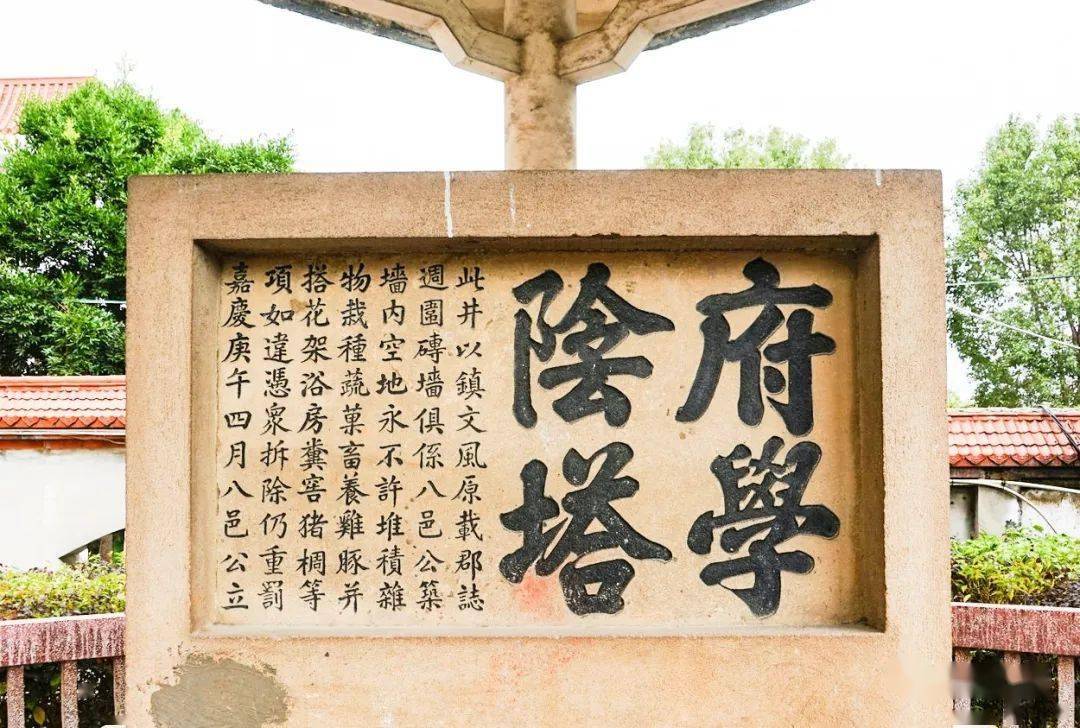 府學
陰塔
此井以鎮文風原載郡誌
週圍磚墻俱係八邑公築
墻内空地永不許堆積雜
物栽種蔬菓畜養雞豚并
搭花架浴房糞窖猪椆等
項如違憑衆拆除仍重罰
嘉慶庚午四月八邑公立